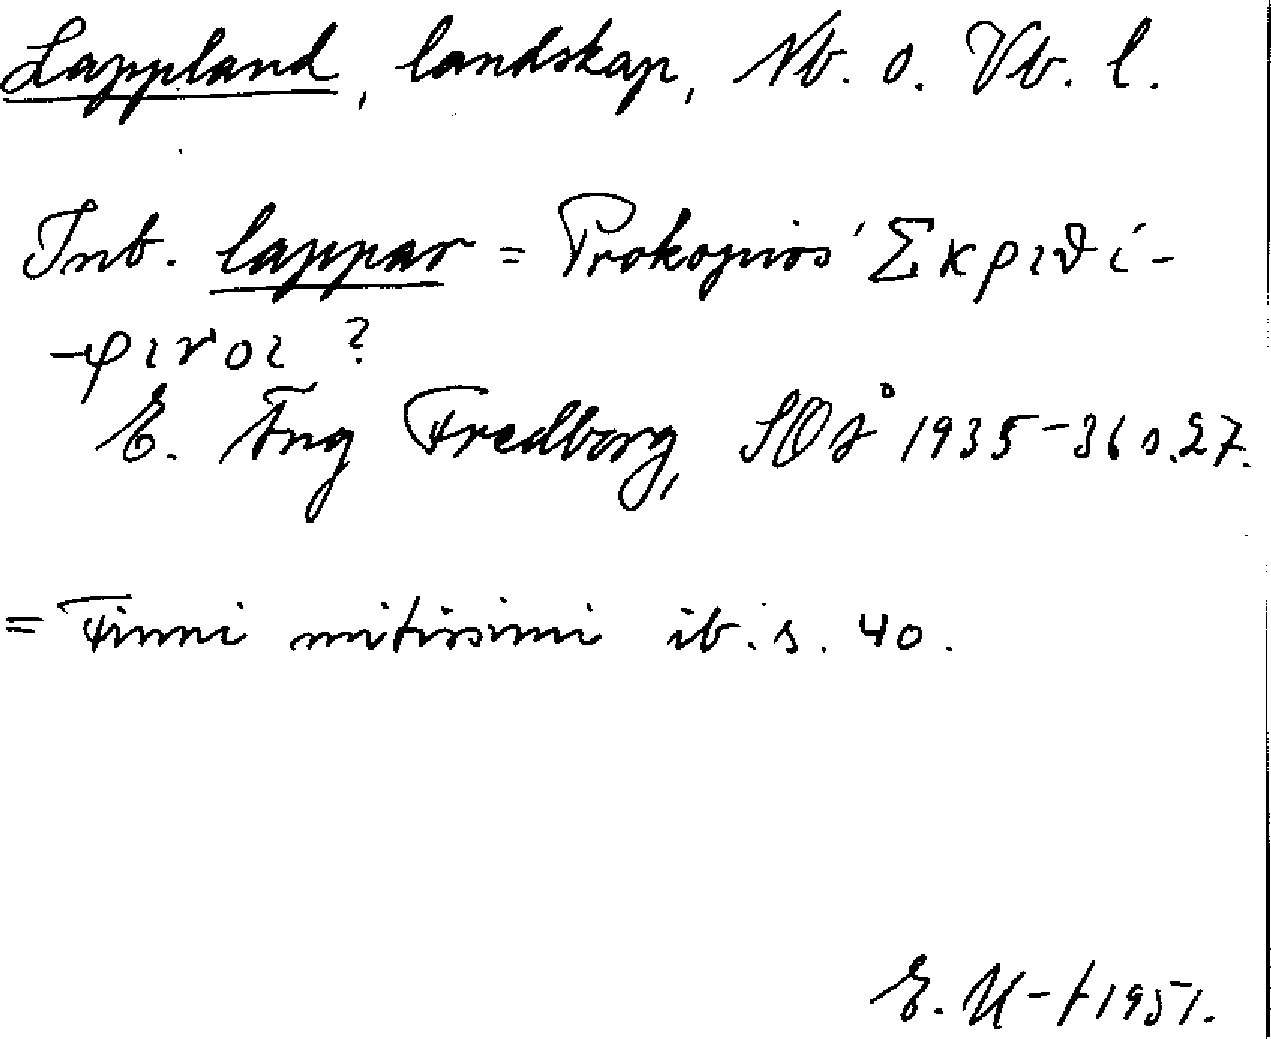 Lappland, landskap, Nb. o. Vb. l.
Inb. lappar = Prokopios' Σκριθί-
-φινοι ?
E. Äng Fredborg, SOÅ 1935-36 s.27.
= Finni mitissimi ib. s. 40.
E. U-t 1951.